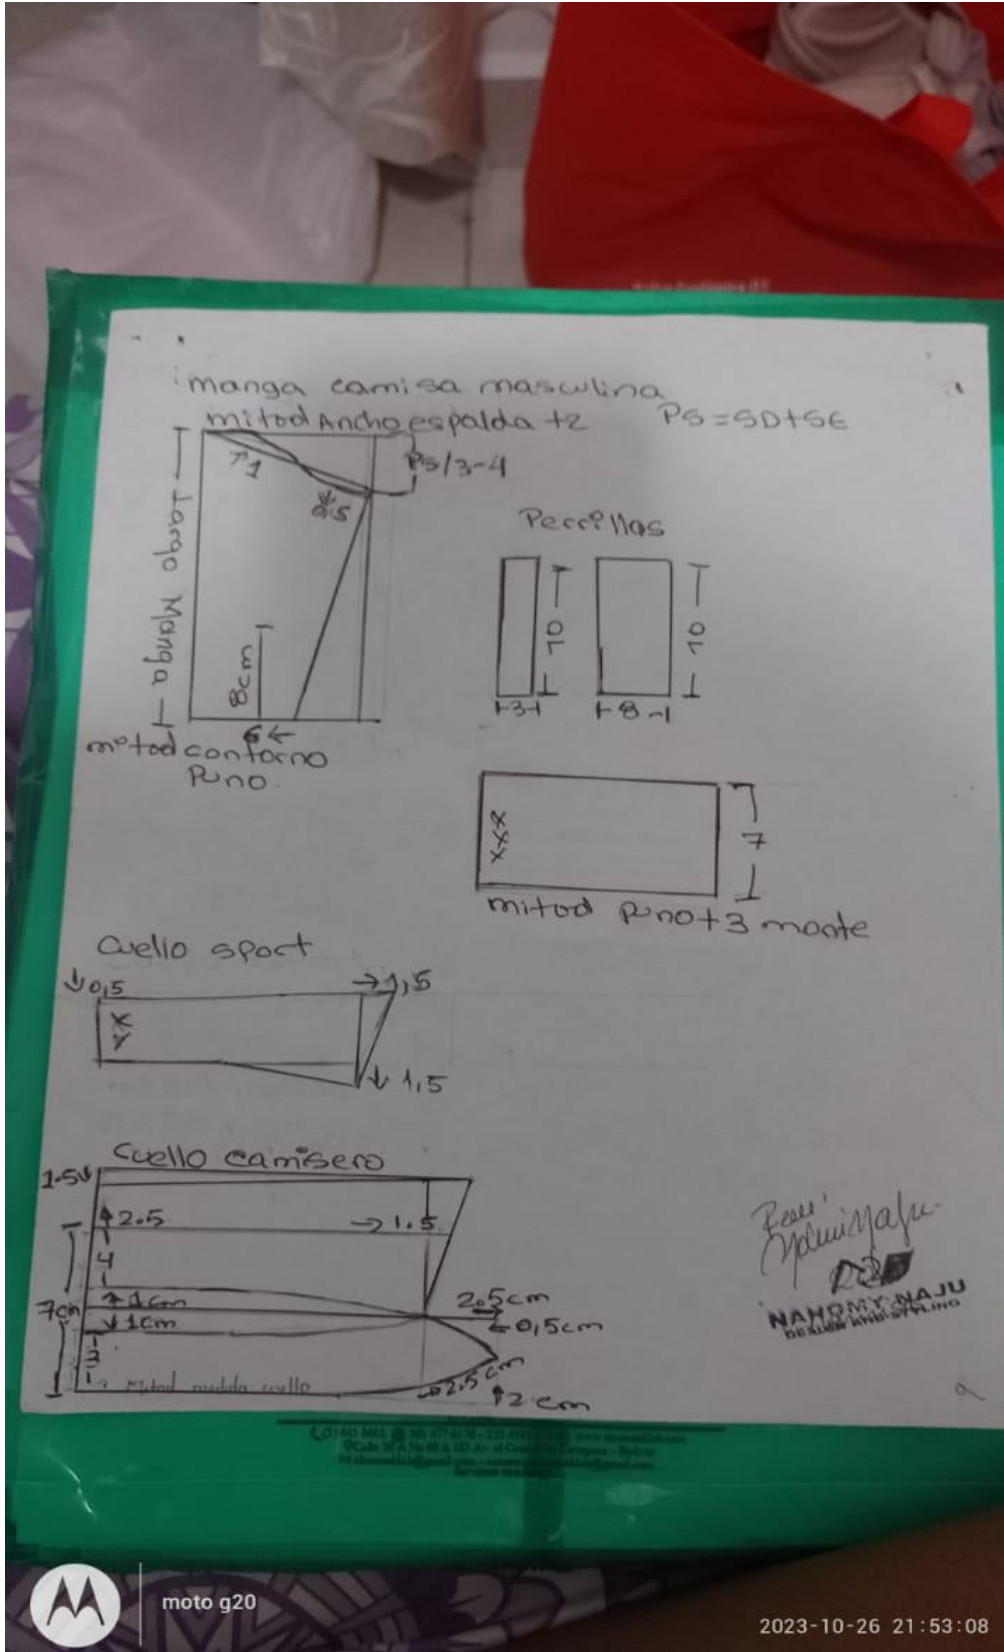 manga camisa masculina
mitad Ancho espalda +2
PS=SD+SE
↑1
PS/3-4
0.5
Largo Manga
8cm
6←
mitad contorno
Puno
Perrillas
10
10
3
8
xxx
7
mitad puno+3 monte
Cuello sport
↓0,5
→1,5
xx
↓1,5
Cuello camisero
1.5↓
↑2.5
→1.5
4
7cm
↑1cm
↓1cm
2.5cm
←0,5cm
3
Mitad medida cuello
→2.5cm
↑2 cm
NAHOMY NAJU
DESIGN AND STYLING
moto g20
2023-10-26 21:53:08